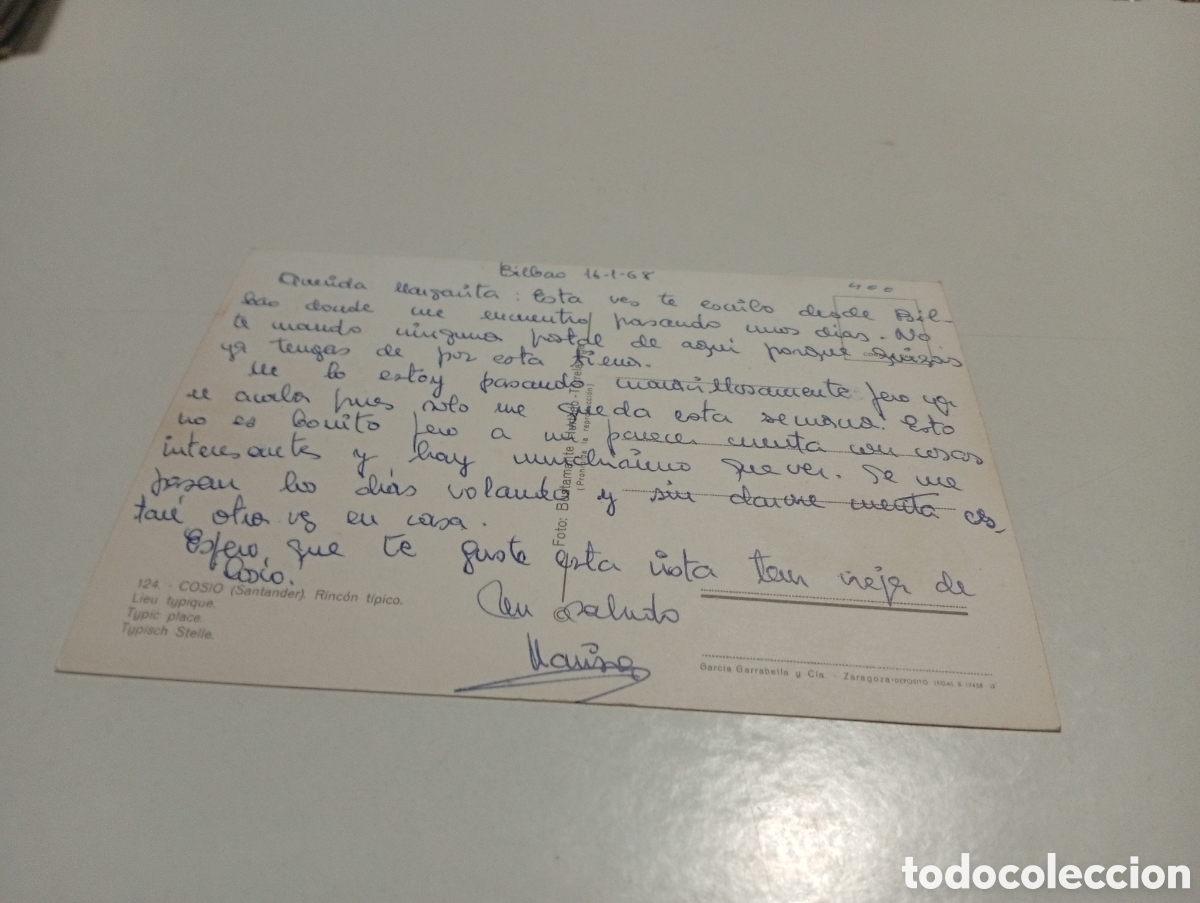 Bilbao 16-1-68
400
Querida Margarita: Esta ves te escribo desde Bil-
bao donde me encuentro pasando unos dias. No
te mando ninguna postal de aqui porque quizas
ya tengas de por esta tierra.
Me lo estoy pasando maravillosamente pero ya
se acaba pues solo me queda esta semana. Esto
no es bonito pero a mi parecer cuenta con cosas
interesantes y hay muchisimo que ver. Se me
pasan los dias volando y sin darme cuenta es_
taré otra vez en casa.
Espero que te guste esta vista tan vieja de
Cosio.
Un saludo
Marisa
124. - COSIO (Santander). Rincón típico.
Lieu typique.
Typic place.
Typisch Stelle.
Foto: Bustamante Hurtado - Torrelavega
(Prohibida la reproducción)
García Garrabella y Cía. - Zaragoza